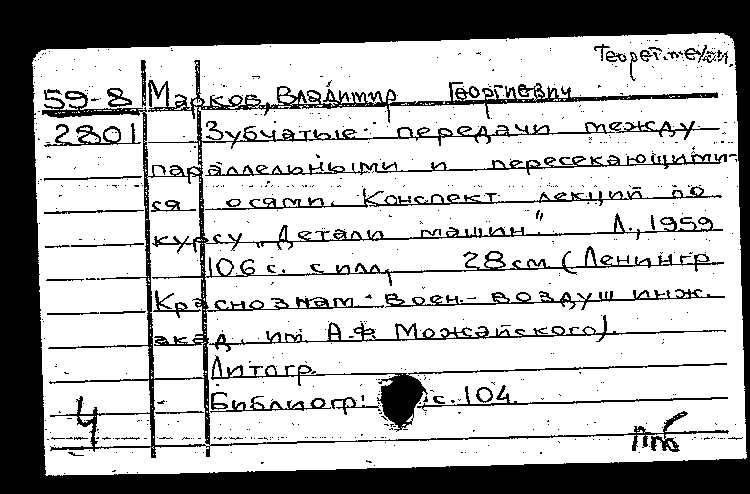 Теорет. механ.
59-8 Марков, Владимир Георгиевич
2801 Зубчатые передачи между
параллельными и пересекающими-
ся осями. Конспект лекций по
курсу „Детали машин". Л., 1959
106 с. с илл, 28 см (Ленингр.
Краснознам. воен.-воздуш инж.
акад. им. А.Ф Можайского).
Литогр.
Библиогр: с. 104.
4